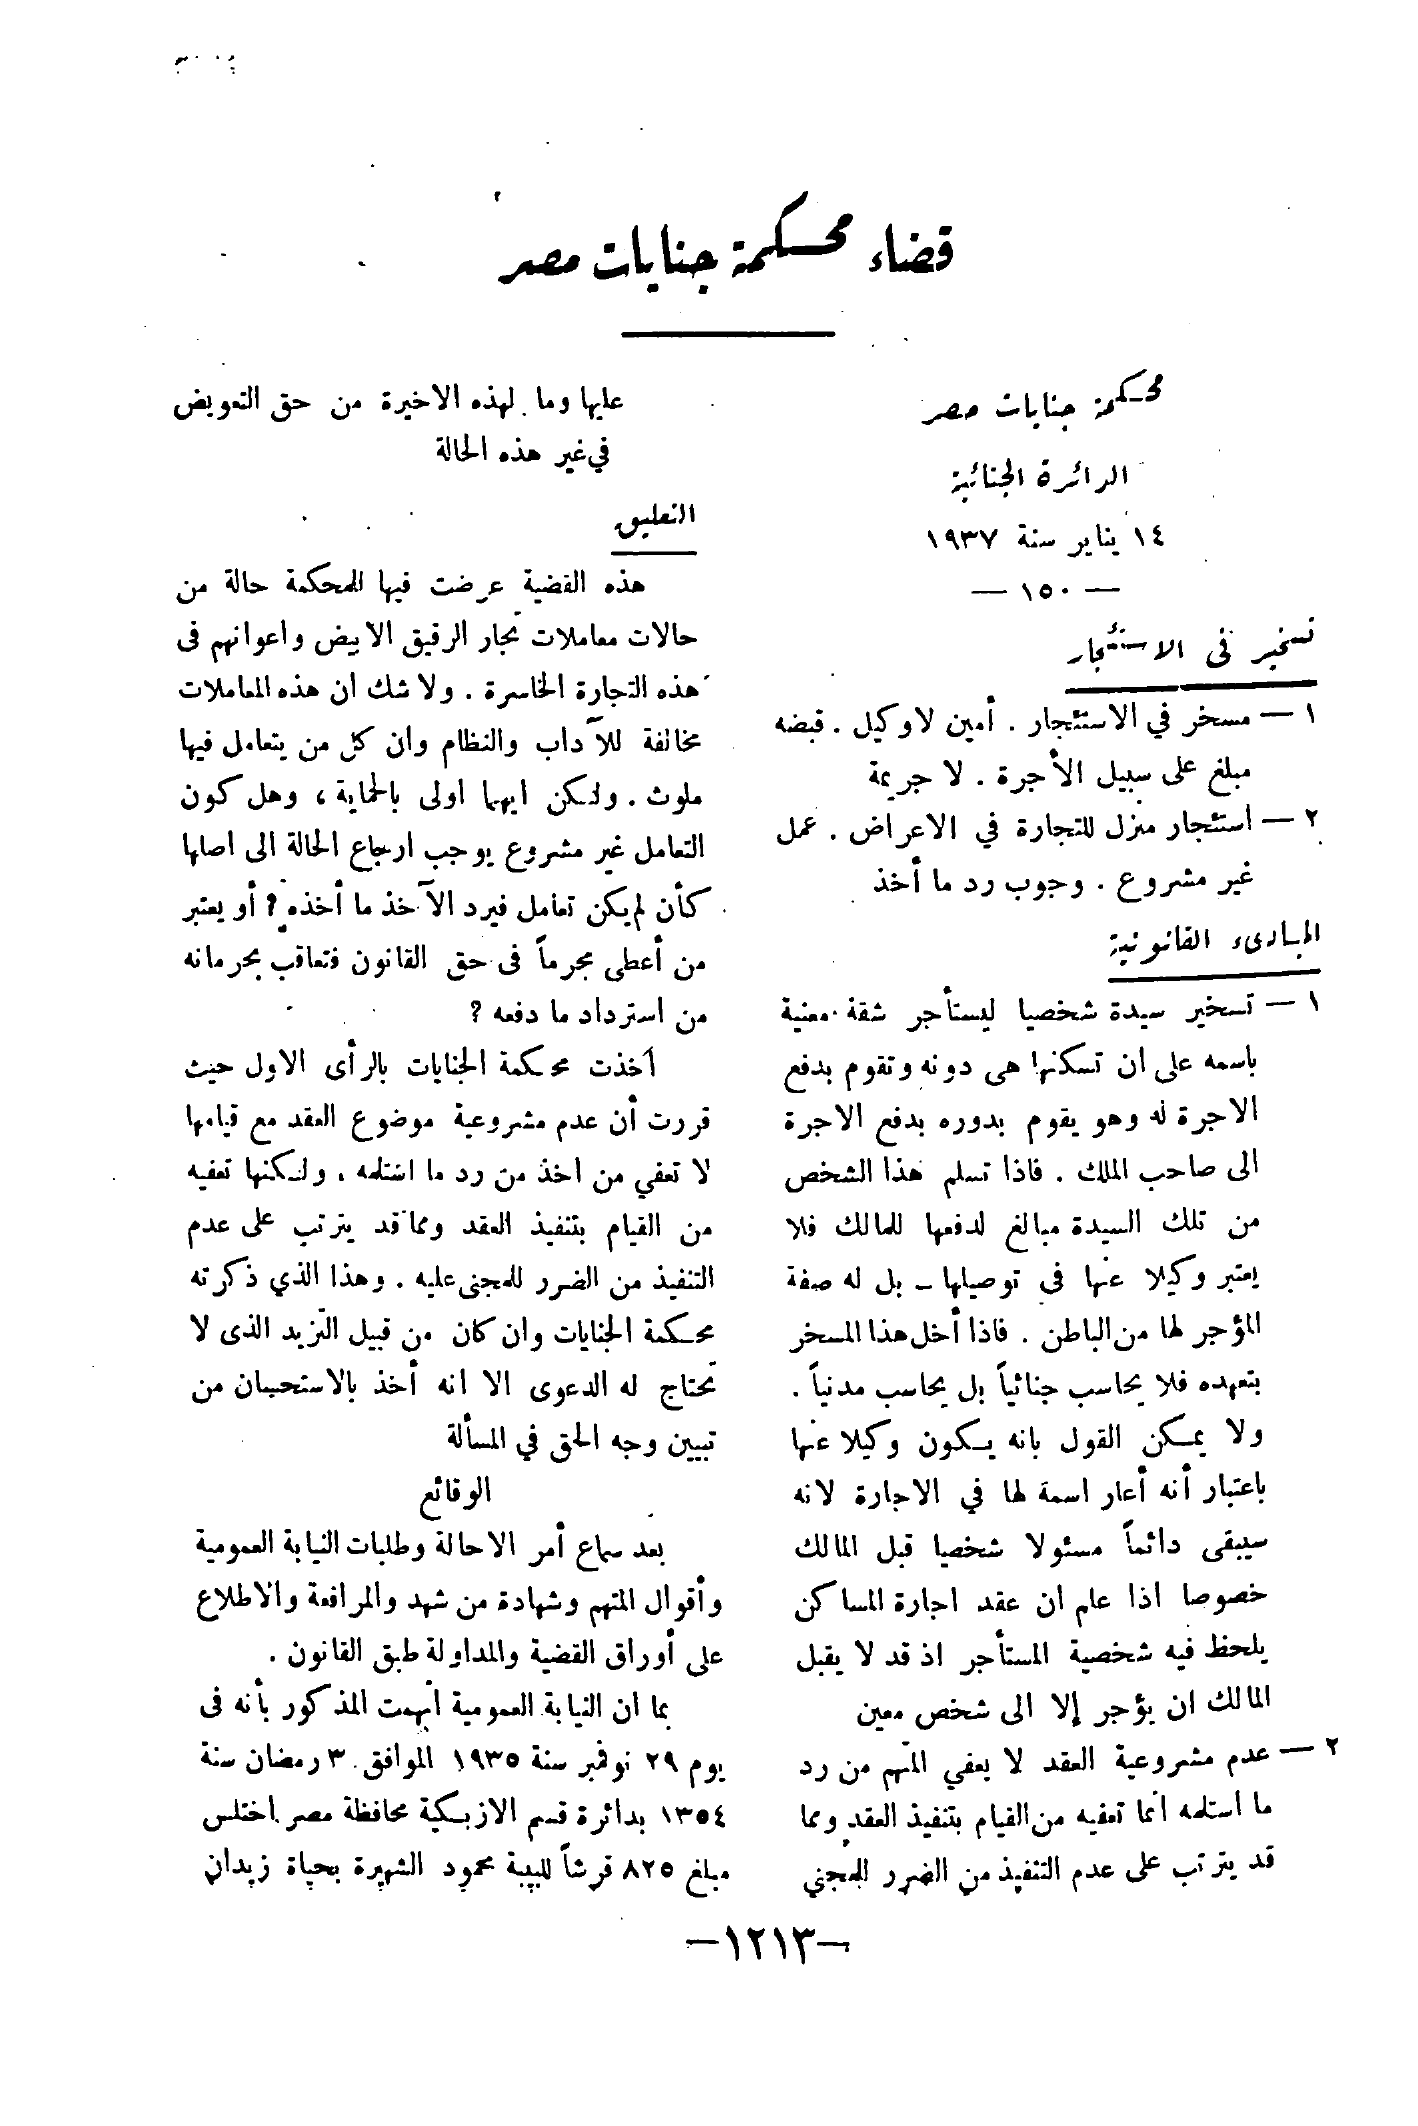 قضاء محكمة جنايات مصر
محكمة جنايات مصر
الدائرة الجنائية
١٤ يناير سنة ١٩٣٧
— ١٥٠ —
تسخير فى الاستئجار
١ — مسخر في الاستئجار . أمين لا وكيل . قبضه
مبلغ على سبيل الأجرة . لا جريمة
٢ — استئجار منزل للتجارة في الاعراض . عمل
غير مشروع . وجوب رد ما أخذ
المبادىء القانونية
١ — تسخير سيدة شخصيا ليستأجر شقة معنية
باسمه على ان تسكنها هى دونه وتقوم بدفع
الاجرة له وهو يقوم بدوره بدفع الاجرة
الى صاحب الملك . فاذا تسلم هذا الشخص
من تلك السيدة مبالغ لدفعها للمالك فلا
يعتبر وكيلا عنها فى توصيلها – بل له صفة
المؤجر لها من الباطن . فاذا أخل هذا المسخر
بتعهده فلا يحاسب جنائياً بل يحاسب مدنياً .
ولا يمكن القول بانه يكون وكيلا عنها
باعتبار أنه أعار اسمة لها في الاجارة لانه
سيبقى دائماً مسئولا شخصيا قبل المالك
خصوصا اذا علم ان عقد اجارة المساكن
يلحظ فيه شخصية المستأجر اذ قد لا يقبل
المالك ان يؤجر إلا الى شخص معين
٢ — عدم مشروعية العقد لا يعفي المتهم من رد
ما استلمه انما تعفيه من القيام بتنفيذ العقد ومما
قد يترتب على عدم التنفيذ من الضرر للمجني
عليها وما لهذه الاخيرة من حق التعويض
في غير هذه الحالة
التعليق
هذه القضية عرضت فيها للمحكمة حالة من
حالات معاملات تجار الرقيق الابيض واعوانهم فى
هذه التجارة الخاسرة . ولا شك ان هذه المعاملات
مخالفة للآداب والنظام وان كل من يتعامل فيها
ملوث . ولكن ايهما اولى بالحماية ، وهل كون
التعامل غير مشروع يوجب ارجاع الحالة الى اصلها
كأن لم يكن تعامل فيرد الآخذ ما أخذه ؟ أو يعتبر
من أعطى مجرماً فى حق القانون فتعاقب بحرمانه
من استرداد ما دفعه ؟
أخذت محكمة الجنايات بالرأى الاول حيث
قررت أن عدم مشروعية موضوع العقد مع قيامها
لا تعفي من اخذ من رد ما استلمه ، ولكنها تعفيه
من القيام بتنفيذ العقد ومما قد يترتب على عدم
التنفيذ من الضرر للمجنى عليه . وهذا الذي ذكرته
محكمة الجنايات وان كان من قبيل التزيد الذى لا
تحتاج له الدعوى الا انه أخذ بالاستحسان من
تبيين وجه الحق في المسألة
الوقائع
بعد سماع أمر الاحالة وطلبات النيابة العمومية
وأقوال المتهم وشهادة من شهد والمرافعة والاطلاع
على أوراق القضية والمداولة طبق القانون .
بما ان النيابة العمومية اتهمت المذكور بأنه فى
يوم ٢٩ نوفمبر سنة ١٩٣٥ الموافق ٣ رمضان سنة
١٣٥٤ بدائرة قسم الازبكية محافظة مصر اختلس
مبلغ ٨٢٥ قرشاً للبيبة محمود الشهيرة بحياة زيدان
—١٢١٣—